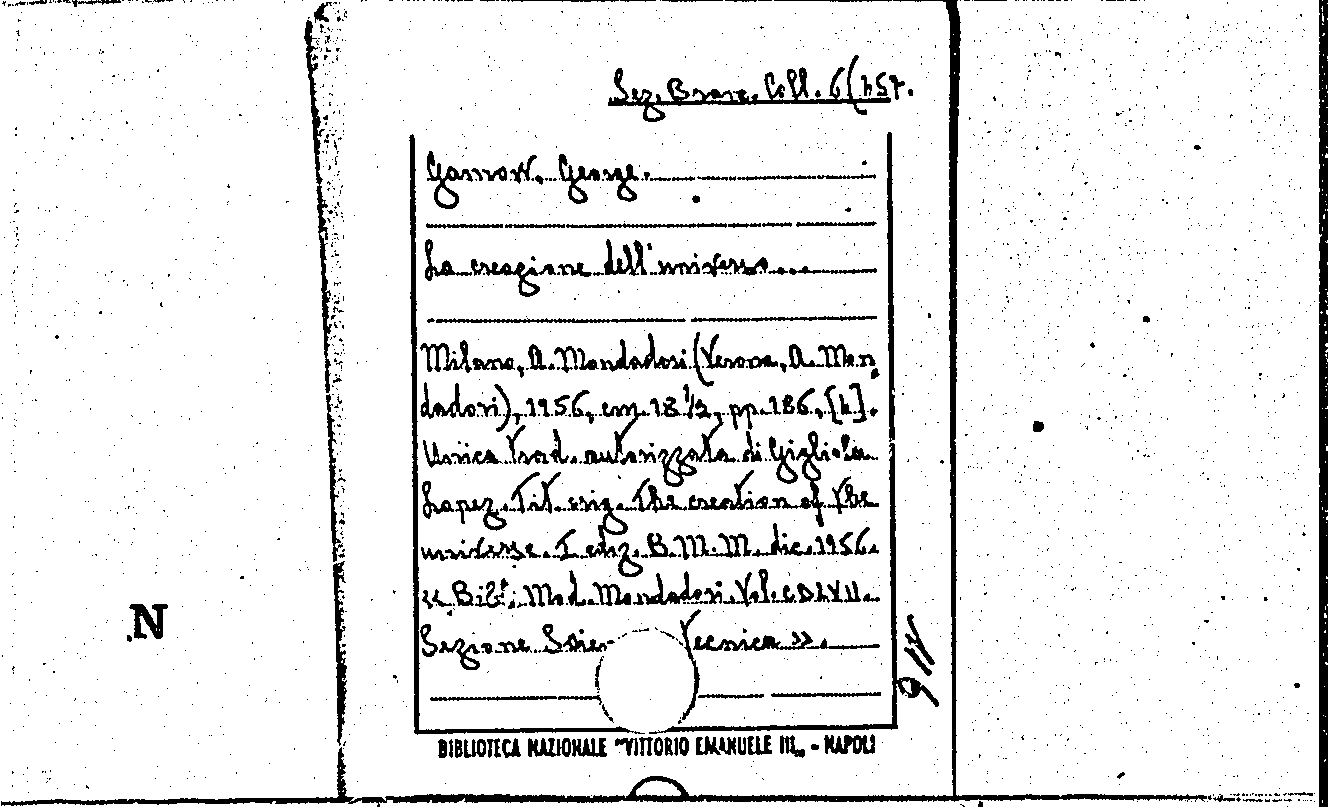 Sez. Branc. Coll. 6(457.
Gamow, George.
La creazione dell'universo...
Milano, A. Mondadori (Verona, A. Mon
dadori), 1956, cm. 18 1/2, pp. 186, [4].
Unica trad. autorizzata di Gigliola
Lopez. Tit. orig. The creation of the
universe. I ediz. B.M.M. dic. 1956.
« Bibl. Mod. Mondadori. Vol. CDLVII.
Sezione Scien Tecnica ».
N
BIBLIOTECA NAZIONALE "VITTORIO EMANUELE III„ - NAPOLI